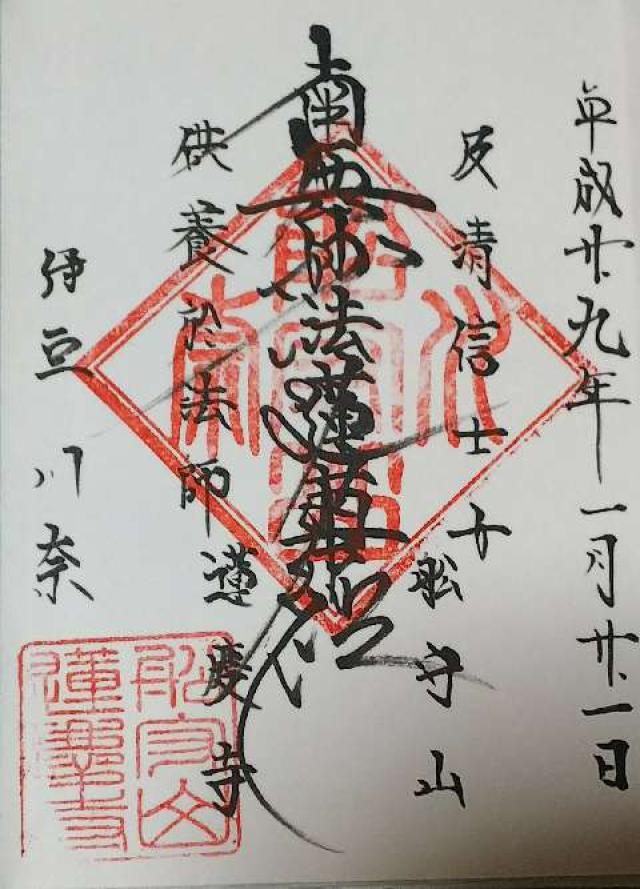 平成廿九年一月廿一日
及清信士女
船守山
南無妙法蓮華経
供養於法師
蓮慶寺
伊豆川奈
船守山
蓮慶寺